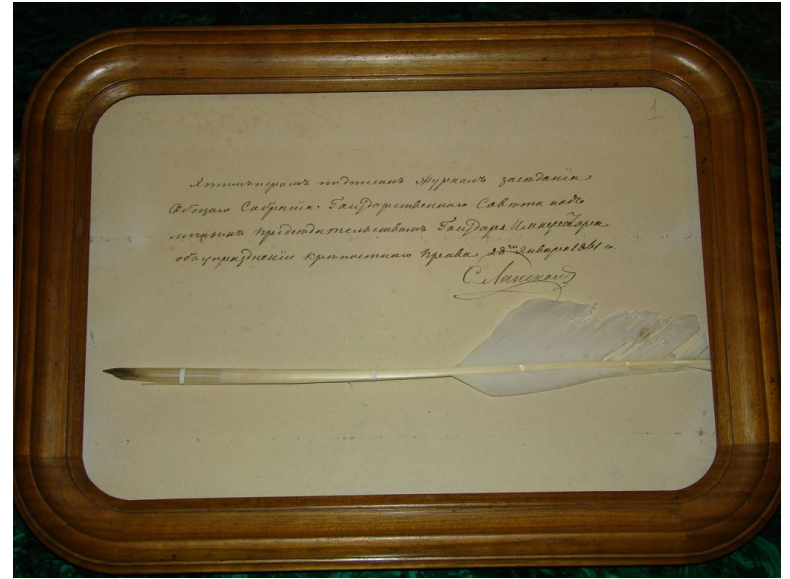 1
Этимъ перомъ подписанъ журналъ заседанiя
Общаго Собранiя Государственнаго Совѣта подъ
личнымъ предсѣдательствомъ Государя Императора
объ упраздненiи крѣпостнаго права 28го Января 1861 г.
С Ланской